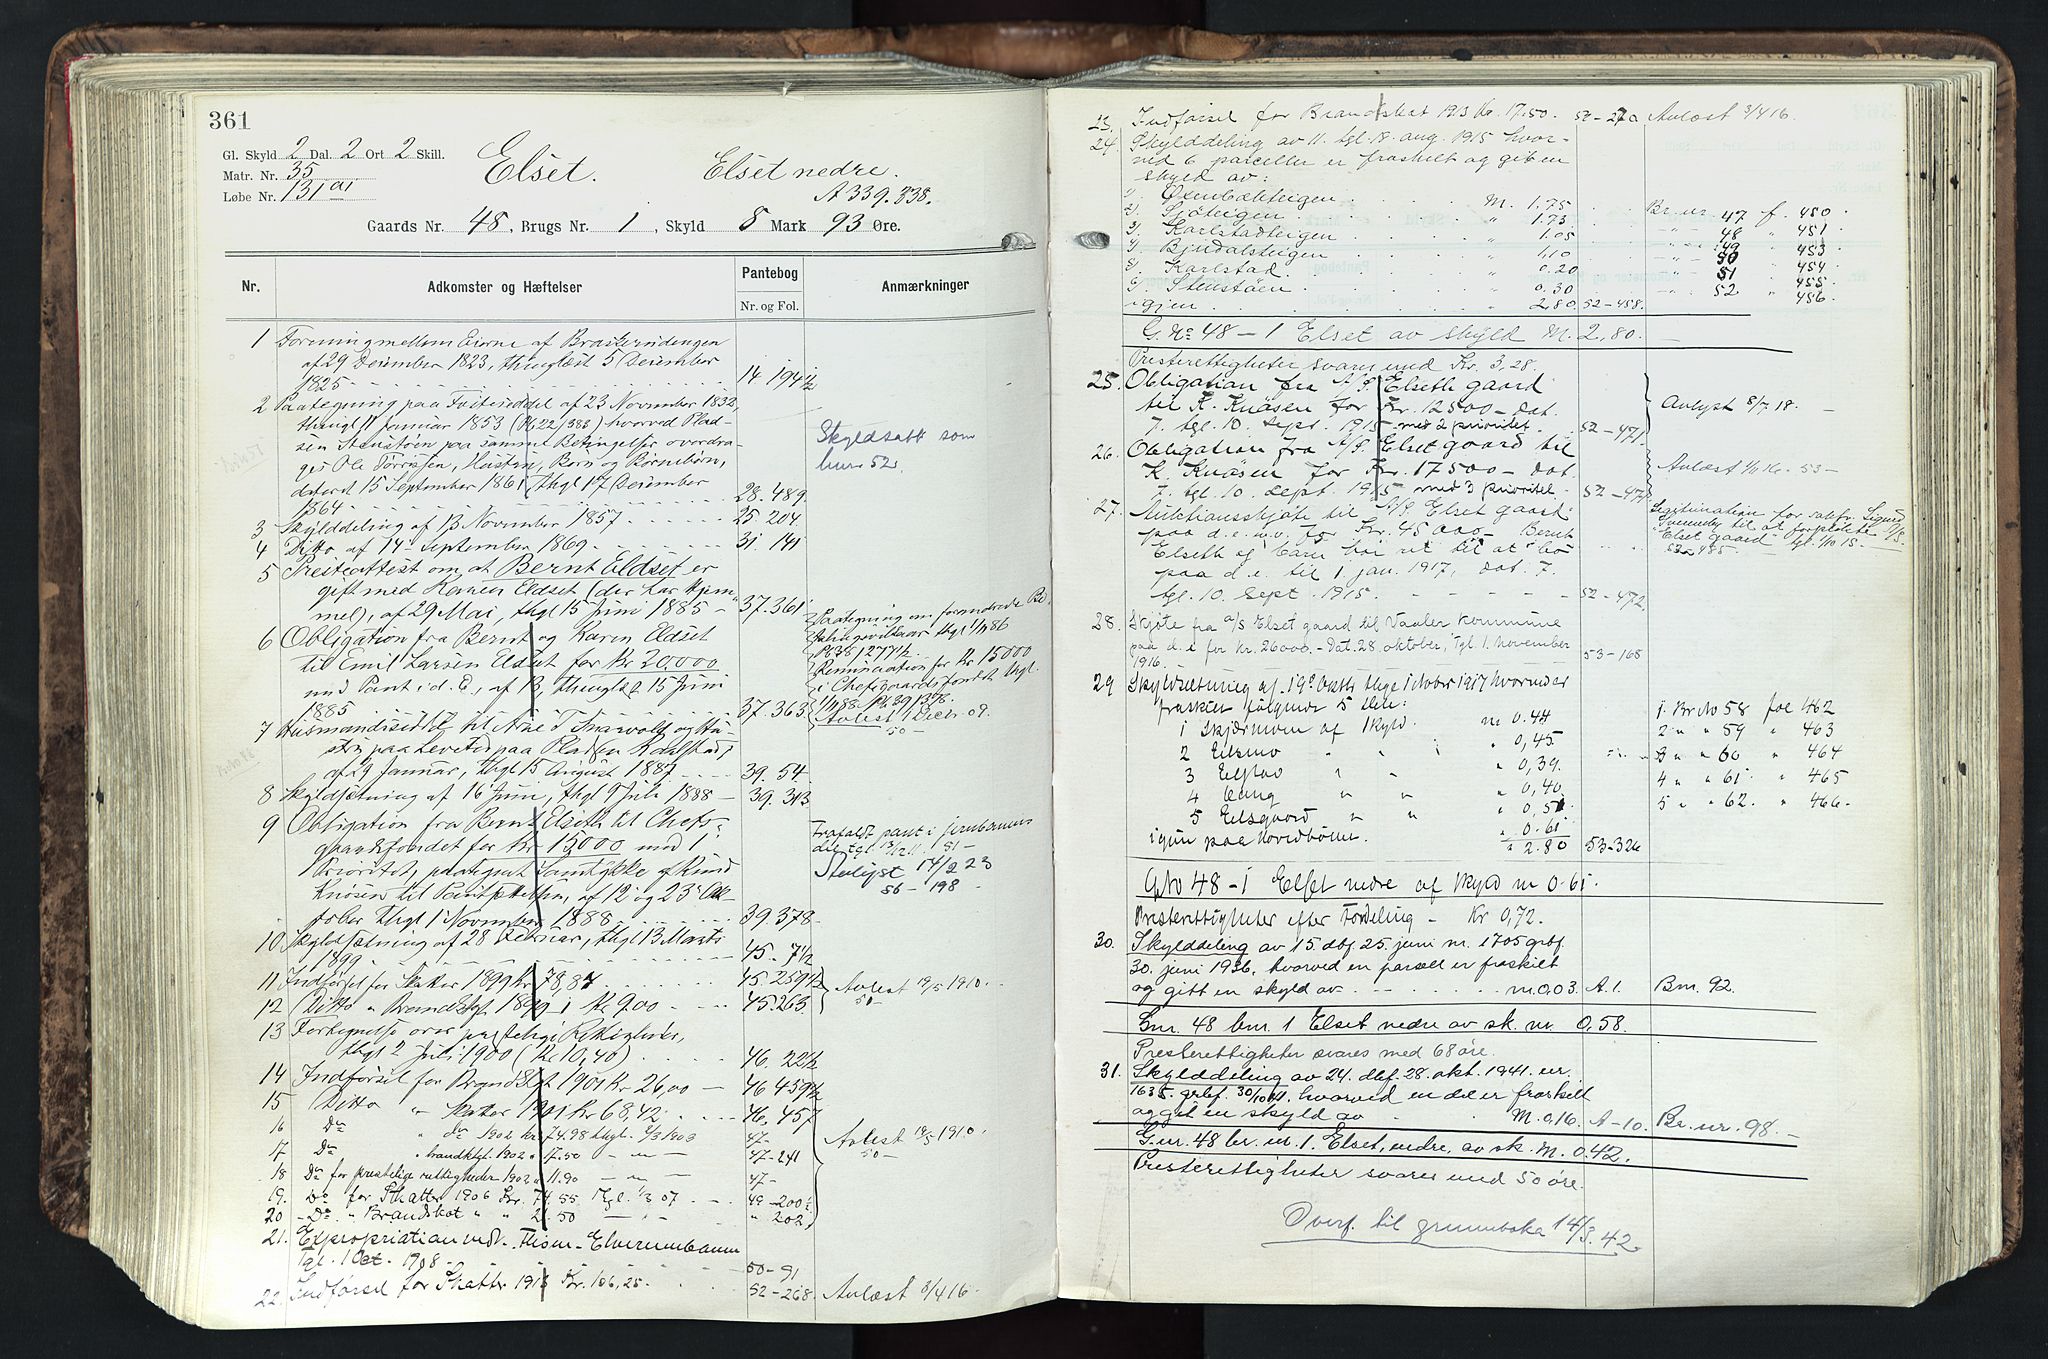 361
Gl. Skyld 2 Dal. 2 Ort 2 Skill.
Matr. Nr. 35
Løbe Nr. 131 a1
Elset. Elset nedre.
A 339. 338.
Gaards Nr. 48, Brugs Nr. 1, Skyld 8 Mark 93 Øre.
Nr. Adkomster og Hæftelser Pantebog Nr. og Fol. Anmærkninger
1 Forening mellem Eierne af
af 29 December 1823, thinglæst 5 December
1825 14 194 1/2
2 Paategning paa Festeseddel af 23 November 1832,
thingl 11 Januar 1853 (Pb 22/386) hvorved Plad-
sen Stenstøen paa samme Betingelser overdra-
ges Ole Torrissen, Hustru, Børn og Børnebørn,
dateret 15 September 1861, thgl 17 December
1864 28. 489.
Skyldsatt som
bnr. 52.
3 Skylddeling af 13 November 1857 25 204.
4 Ditto af 14 September 1869. 31. 141
5 Presteattest om at Bernt Eldset er
gift med Karen Eldset (der har Hjem-
mel), af 29 Mai, thgl 15 Juni 1885 37. 361.
6 Obligation fra Bernt og Karen Eldset
til Emil Larsen Eldset for Kr 20.000
med Pant i d. E., af 13, thinglæst 15 Juni
1885 37. 363
Paategning om forandrede Be-
talingsvilkaar thgl 1/11 86
Pb 38 / 277 1/2.
Renunciation for Kr 15000
i Chefsgaardsfondet thgl.
1/11 88. Pb 39 / 378.
Avlest 1 Decbr. 09.
50 -
7 Husmandsseddel til Arne T Snarvold og Hu-
stru paa Levetid paa Pladsen Kalstad,
af 29 Januar, thgl 15 August 1887 39. 54.
8 Skyldsætning af 16 Juni, thgl 9 Juli 1888 39. 313
9 Obligation fra Bernt Elseth til Chefs-
gaardsfondet for Kr 15000 med 1
Prioritet, paategnet Samtykke af Knud
Knøsen til Pantsættelsen, af 12 og 23 Ok-
tober thgl 1 November 1888 39. 378.
Frafaldt pant i jernbanens
del tgl 13/12 11. 51-
Avlyst 14/2 23
56 - 198
10 Skyldsætning af 28 Februar, thgl 13 Marts
1899 45. 7 1/2
11 Indførsel for Skatter 1899 kr 78,87 45. 259 1/2
12 Ditto " Brandsktgt 1899 i Kr 9.00 45. 263
Avlest 19/5 1910.
50 -
13 Fortegnelse over prestelige Rettigheder,
thgl 2 Juli 1900 (Kr 10,40) 46. 22 1/2
14 Indførsel for Brandsktgt 1901 Kr 26,00 46 459 1/2
15 Ditto " Skatter 1901 Kr 68,42 46. 457
16 Do " do 1902 kr 74.98 thgl. 2/3 1903 47-
17 Do " brandktgt. 1902 " 17.50 - " - 47-241
18 Do for prestelige rettigheder 1902 " 11.90 - " - 47-
19. Do for Skatter 1906 Kr. 74.55 Tgl. 1/3 07 49-200 1/2
20 - Do. " Brandskat " " 21.50 - " - " 202
Avlest 19/5 1910.
50 -
21. Expropriation vedk. Flisen - Elverumbanen
Tgl. 1 Oct. 1908 50-91
22. Indførsel for Skatter 1913 Kr. 106,25. 52-268. Avlæst 8/4 16
23. Indførsel for Brandskat 1913 Kr. 17.50. 52-270 Avlæst 8/4 16.
24. Skylddeling av 11. tgl. 18. aug. 1915 hvor-
ved 6 parceller er fraskilt og git en
skyld av:
1) Øxenbækteigen M. 1.75 Br. nr. 47 f. 450
2) Sjøteigen " 1.73 " 48 " 451
3) Karlstadteigen 1.05 " 49 " 453
4) Bjndalsteigen 1.10 " 50 " 454
5) Karlstad " 0.20 " 51 " 455
6) Stenstøen " 0.30 " 52 " 456
igjen " 2.80. 52-458.
G. No 48 - 1 Elset av skyld M. 2,80.
Presterettigheter svares med Kr. 3,28.
25. Obligation fra A/S Elseth gaard
til K. Knåsen for Kr. 12500 - dat.
7. tgl. 10. sept. 1915 - med 2 prioritet. 52-471.
Avlyst 8/7. 18.
26. Obligation fra A/S Elset gaard til
K. Knåsen for Kr. 17500 - dat.
7. tgl. 10. sept. 1915 - med 3 prioritet. 52-471
Avlæst 1/11 16. 53 -
27. Auktionsskjøte til A/S Elset gaard
paa d. e. m. v. for Kr. 45000 - Bernt
Elseth og barn har ret til at bo
paa d. e. til 1 jan. 1917, dat. 7.
tgl. 10. sept. 1915. 52-472.
Legitimation for Sigurd
til at forplikte A/S
"Elset gaard" tgl. 1/10 15.
52-485.
28. Skjøte fra A/S Elset gaard til Vaaler kommune
paa d. e for kr. 26000. - Dat. 28. oktober, Tgl. 1. November
1916. 53-168
29 Skyldsætning af 19de Oktbr thgl Oktober 1917 hvorunder
fraskilt følgende 5 dele:
1 Skjærmoen af skyld m 0.44 1. Br No 58 fol 462
2 Elsmo " " " 0,45 2 " " 59 " 463
3 Elstad " " " 0,39. 3 " " 60 " 464
4 Eeng " " " 0,40. 4 " " 61 " 465
5 Elsgaard " " " 0.51 5 " " 62. " 466.
igjen paa hovedbølet. " 0.61
" 2.80 53-326
G No 48-1 Elset nedre af skyld m 0.61.
Presterettigheter efter Fordeling - Kr 0,72.
30. Skylddeling av 15. dbf. 25. juni nr. 1705 grbf.
30. juni 1936, hvorved en parsell er fraskilt
og gitt en skyld av m. 0.03. A. 1. Bnr. 92.
Gnr. 48 bnr. 1 Elset nedre av sk. m. 0,58.
Presterettigheter svares med 68 øre.
31. Skylddeling av 24. dbf. 28. okt. 1941. nr.
1635. grbf. 30/10 41. hvorved en del er fraskilt
og git en skyld av M. 0,16. A-10. Br. nr. 98.
G. nr. 48 br. nr. 1. Elset, nedre, av sk. M. 0,42.
Presterettigheter svares med 50 øre.
Overf. til grunnboka 14/3. 42.